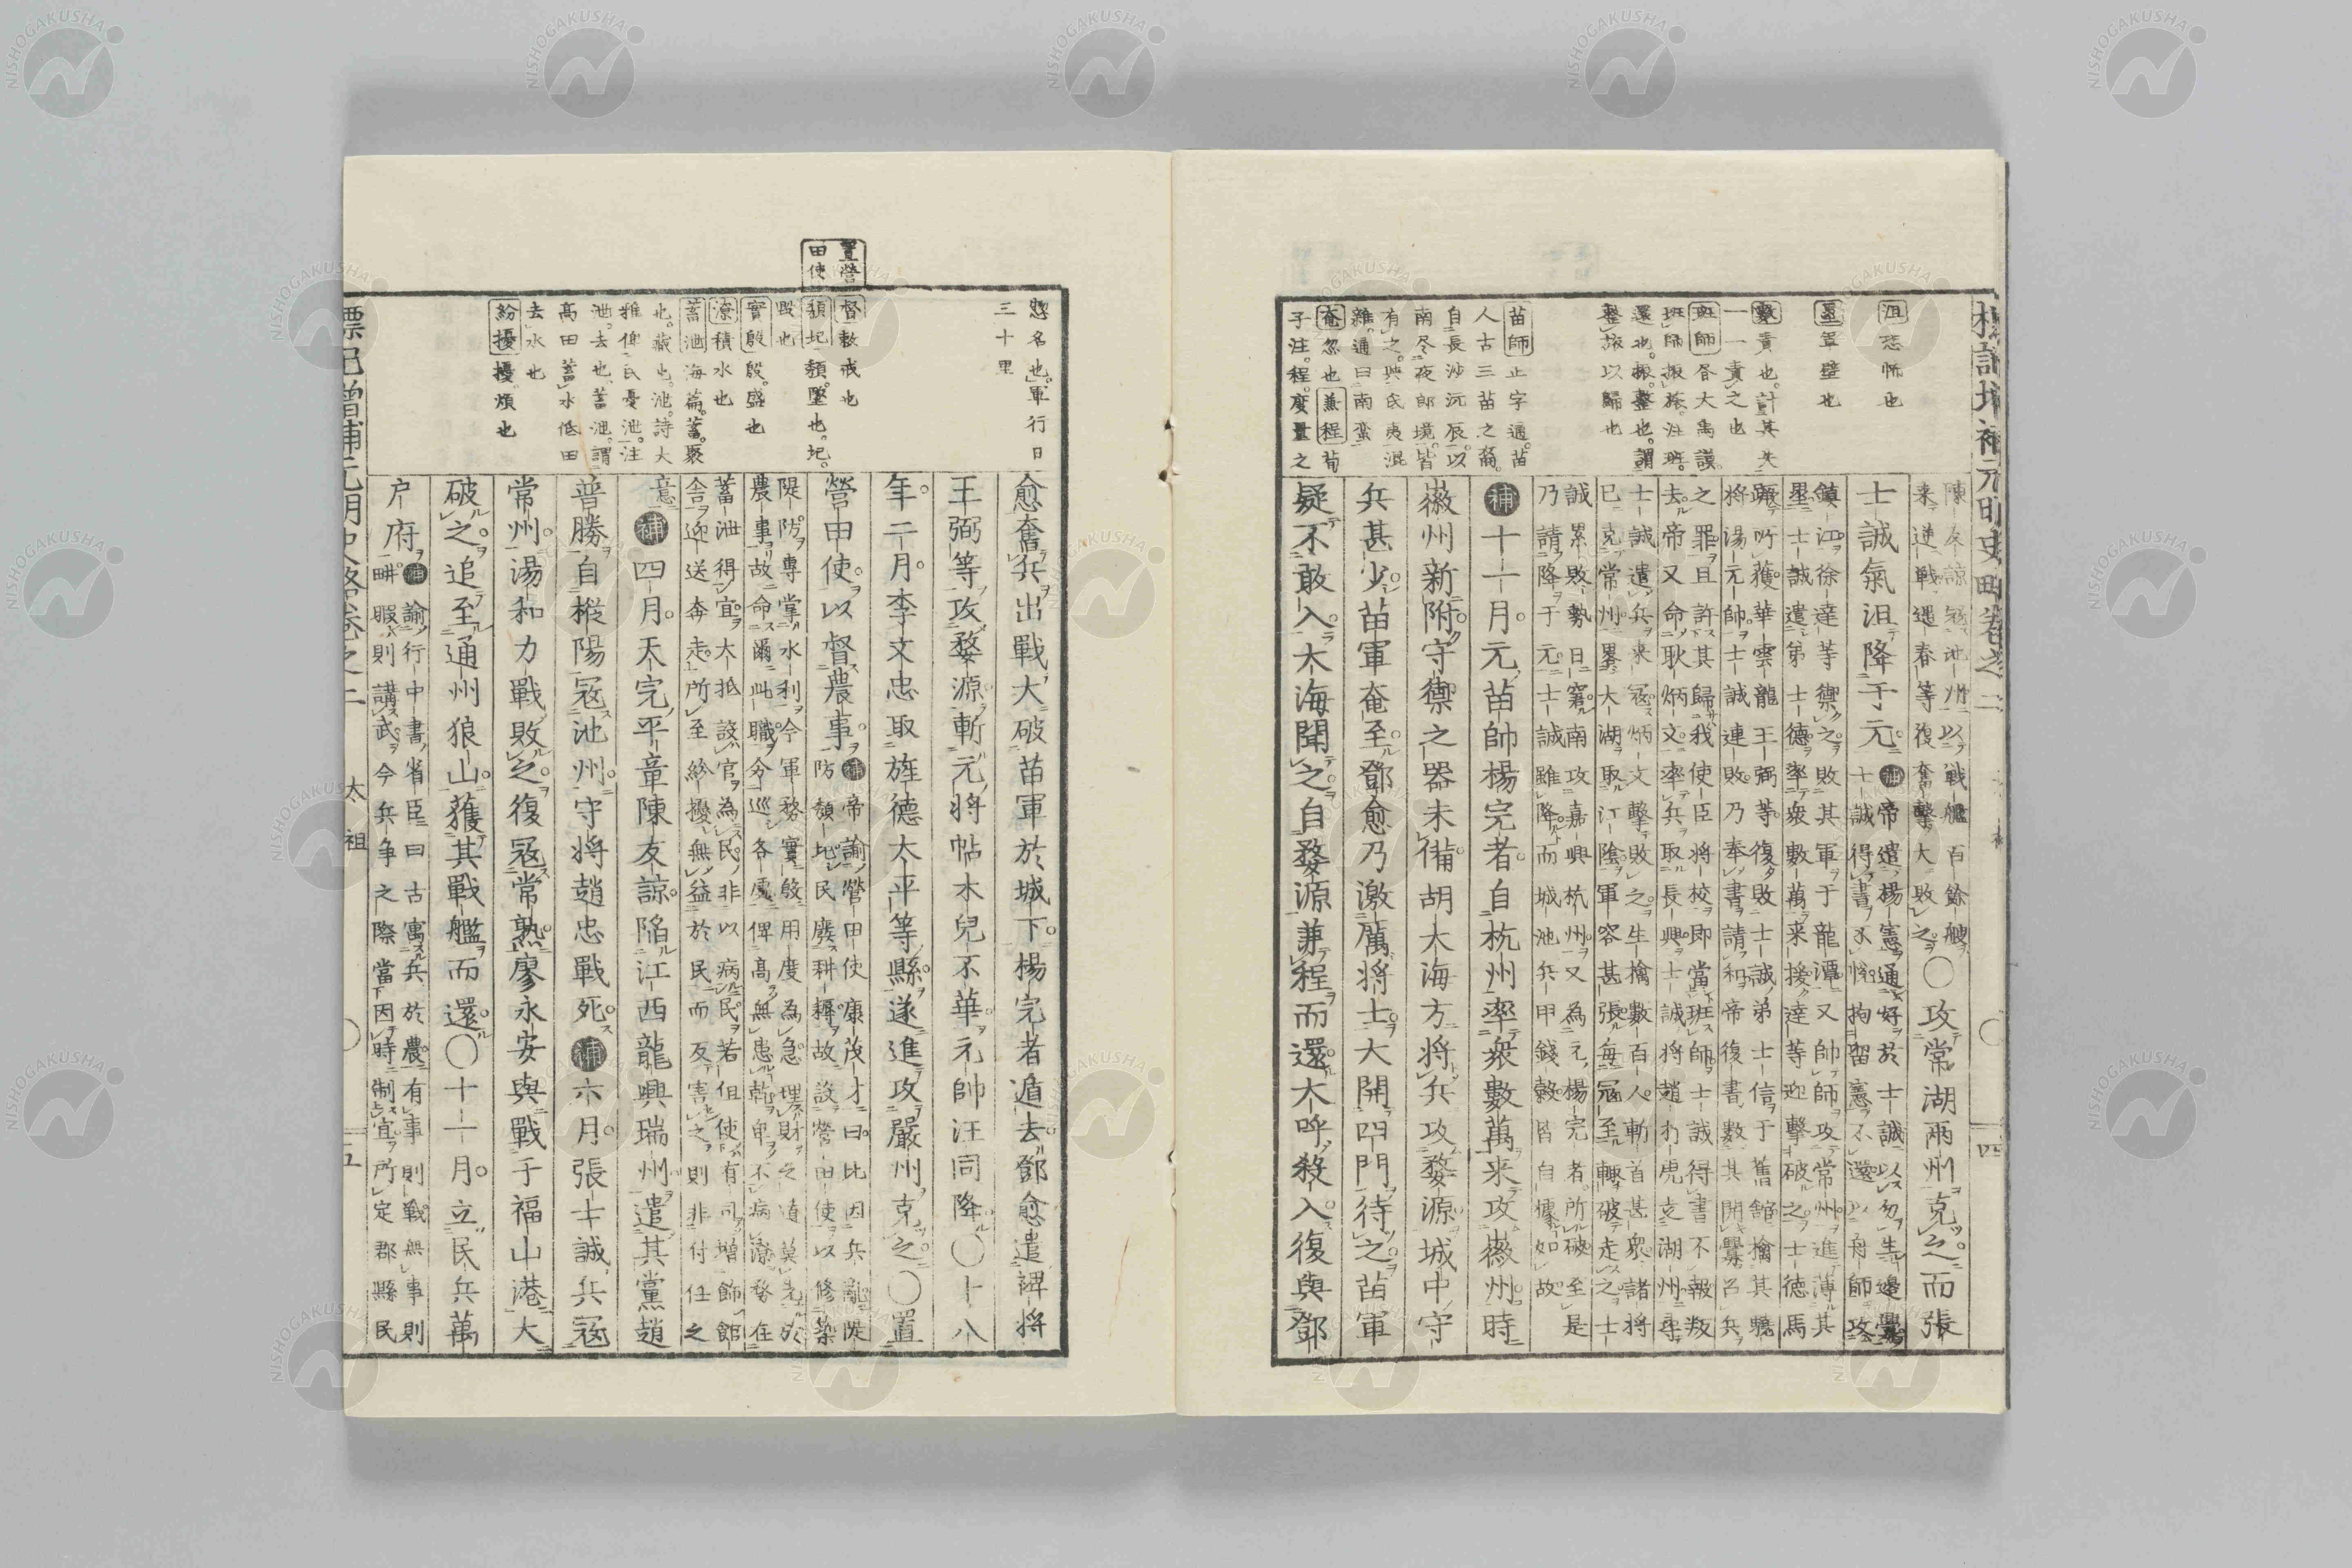 陳友諒寇池州以戰艦百餘艘
來逆戰遇春等復奮擊大敗之〇攻常湖兩州克之而張
士誠氣沮降于元補帝遣楊憲通好於士誠以勿生邊釁
士誠得書不悅拘留憲不還以舟師攻
鎮江徐達等禦之敗其軍于龍潭又帥師攻常州進薄其
壘士誠遣弟士德率衆數萬來援達等迎擊破之士德馬
蹶所獲華雲龍王弼等復敗士誠弟士信于舊館擒其驍
將湯元帥士誠連敗乃奉書請和帝復書數其開釁召兵
之罪且許其歸我使臣將校即當班師士誠得書不報叛
去帝又命耿炳文率兵取長興士誠將趙打虎走湖州尋
士誠遣兵來寇炳文擊敗之生擒數百人斬首甚衆諸將
已克常州畧大湖取江陰軍容甚張每冦至輙破走之士
誠累敗勢日窘南攻嘉興杭州又為元楊完者所破至是
乃請降于元士誠雖降而城池兵甲錢穀皆自據如故
補十一月元苗帥楊完者自杭州率衆數萬來攻徽州時
徽州新附守禦之器未備胡大海方將兵攻婺源城中守
兵甚少苗軍奄至鄧愈乃激厲將士大開四門待之苗軍
疑不敢入大海聞之自婺源兼程而還大呼殺入復與鄧
沮恐怖也
壘軍壁也
數責也計其失
一一責之也
班師尽大禹謨
班師振旅注班
還也振整也謂
整旅以歸也
苗師止字通苗
人古三苗之裔
自長沙沅辰以
南尽夜郎境皆
有之與氐夷混
雜通曰南蛮
奄忽也兼程荀
子注程度量之
四
愈奮兵出戰大破苗軍於城下楊完者遁去鄧愈遣裨將
王弼等攻婺源斬元將帖木兒不華元帥汪同降〇十八
年二月李文忠取旌德太平等縣遂進攻嚴州克之〇置
營田使以督農事補帝諭營田使康茂才曰比因兵亂隄
防頽圯民廢耕耨故設營田使以修築
隄防專掌水利今軍務實殷用度為急理財之道莫先於
農事故命爾此職分巡各處俾高無患乾卑不病潦務在
蓄泄得宜大抵設官為民非以病民若但使有司增飾館
舎迎送奔走所至紛擾無益於民而反害之則非付任之
意補四月天完平章陳友諒陷江西龍興瑞州遣其黨趙
普勝自樅陽冦池州守將趙忠戰死補六月張士誠兵冦
常州湯和力戰敗之復冦常熟廖永安與戰于福山港大
破之追至通州狼山獲其戰艦而還〇十一月立民兵萬
户府補諭行中書省臣曰古寓兵於農有事則戰無事則
畊暇則講武今兵争之際當因時制宜所定郡縣民
置營
田使
惣名也軍行日
三十里
督敕戒也
頽圯頽墜也圯
毀也
實殷殷盛也
潦積水也
蓄泄海篇蓄聚
也藏也泄詩大
雅俾民憂泄注
泄去也蓄泄謂
高田蓄水低田
去水也
紛擾擾煩也
標記增補元明史畧卷之二
太祖
五